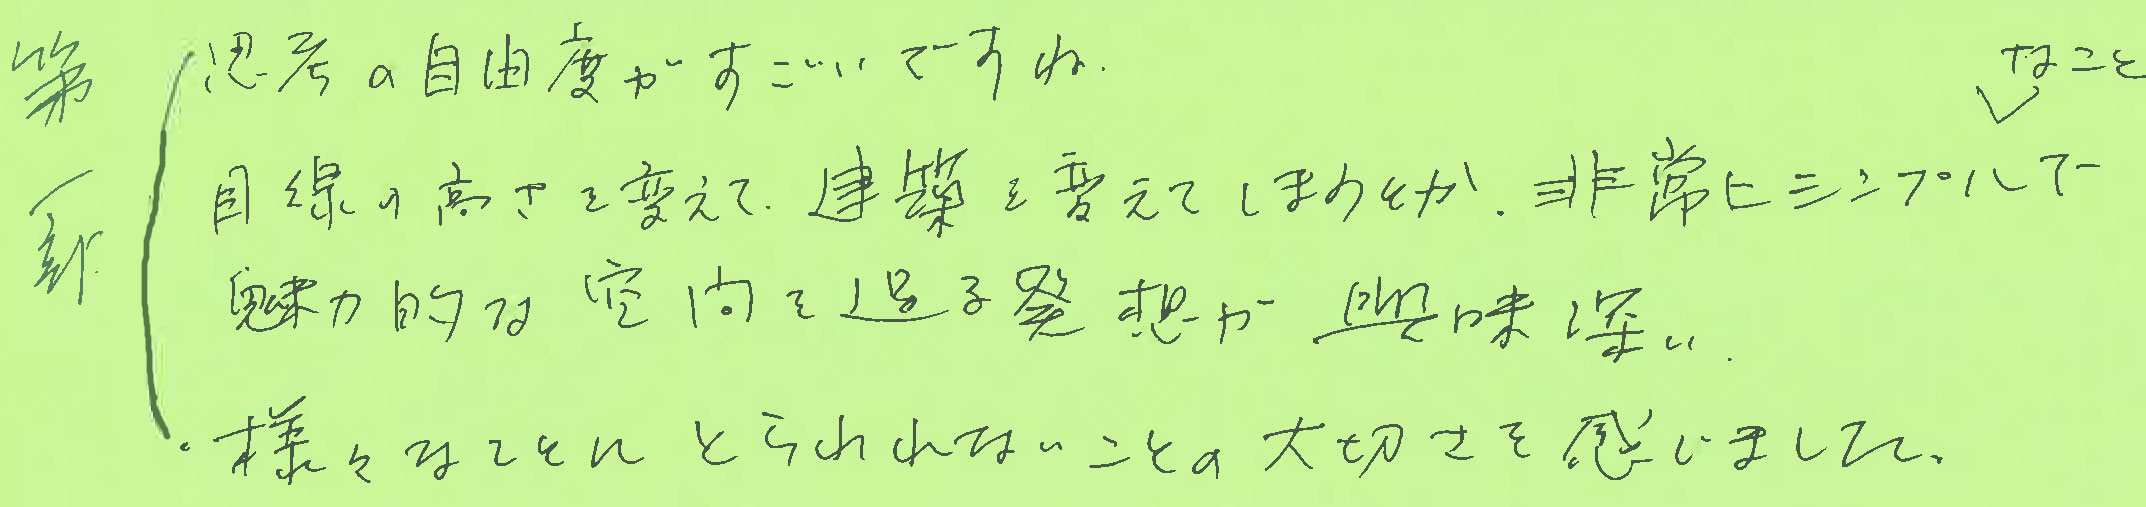 第一部
思考の自由度がすごいですね.
目線の高さを変えて、建築を変えてしまうとか. 非常にシンプルなことで
魅力的な空間を造る発想が興味深い.
・様々なことにとらわれないことの大切さを感じました。